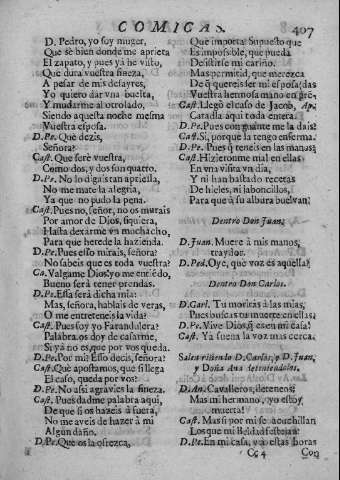 COMICA.
407
D. Pedro, yo soy muger,
Que sè bien donde me aprieta
El zapato, y pues yà he visto,
Que dura vuestra fineza,
A pesar de mis desayres,
Yo quiero dar una buelta,
Y mudarme al otro lado,
Siendo aquesta noche mesma
Vuestra esposa.
D. Pe. Què dezis,
Señora?
Cast. Que serè vuestra,
Como dos, y dos son quatro.
D. Pe. No lo digais tan aprissa,
No me mate la alegria,
Ya que no pudo la pena.
Cast. Pues no, señor, no os murais
Por amor de Dios, siquiera,
Hasta dexarme un muchacho,
Para que herede la hazienda.
D. Pe. Pues esso mirais, señora?
No sabeis que es toda vuestra
Ca. Valgame Dios! yo me entiēdo,
Bueno serà tener prendas.
D. Pe. Essa serà dicha mia:
Mas, señora, hablais de veras,
O me entreteneis la vida?
Cast. Pues soy yo Farandulera?
Palabra os doy de casarme,
Si yà no es, que por vos queda.
D. Pe. Por mi? Esso decis, señora?
Cast. Què apostamos, que si llega
El caso, queda por vos?
D. Pe. No assi agravies la fineza.
Cast. Pues dadme palabra aqui,
De que si os hazeis à fuera,
No me aveis de hazer à mi
Algun daño.
D. Pe. Que os la ofrezca,
Que importa? Supuesto que
Es impossible, que pueda
Desistirse mi cariño.
Mas permitid, que merezca
De q̃ quereis ser mi esposa, das
Vuestra hermosa mano en prē,
Cast. Llegò el caso de Jacob, Ap.
Catadla aqui toda entera.
D. Pe. Pues con guante me la dais?
Cast. Si, porque la tengo enferma.
D. Pe. Pues q̃ teneis en las manos?
Cast. Hizieronme mal en ellas
En una visita un dia,
Y ni han bastado recetas
De hieles, ni jaboncillos,
Para que à su albura buelvan?
Dentro Don Juan.
D. Juan. Muere à mis manos,
traydor.
D. Ped. Oye, què voz es aquella?
Dentro Don Carlos.
D. Carl. Tu moriràs à las mias,
Pues buscas tu muerte en ellas!
D. Pe. Vive Dios, q̃ es en mi casa!
Cast. Yà suena la voz mas cerca.
Salen riñendo D. Carlos, y D. Juan,
y Doña Ana deteniendolos.
D. An. Cavalleros, deteneos:
Mas mi hermano, yo estoy
muerta!
Cast. Mas si por mi se acuchillan
Los que mi Beldad festejan!
D. Pe. En mi casa, y à estas horas
Cc4
Con